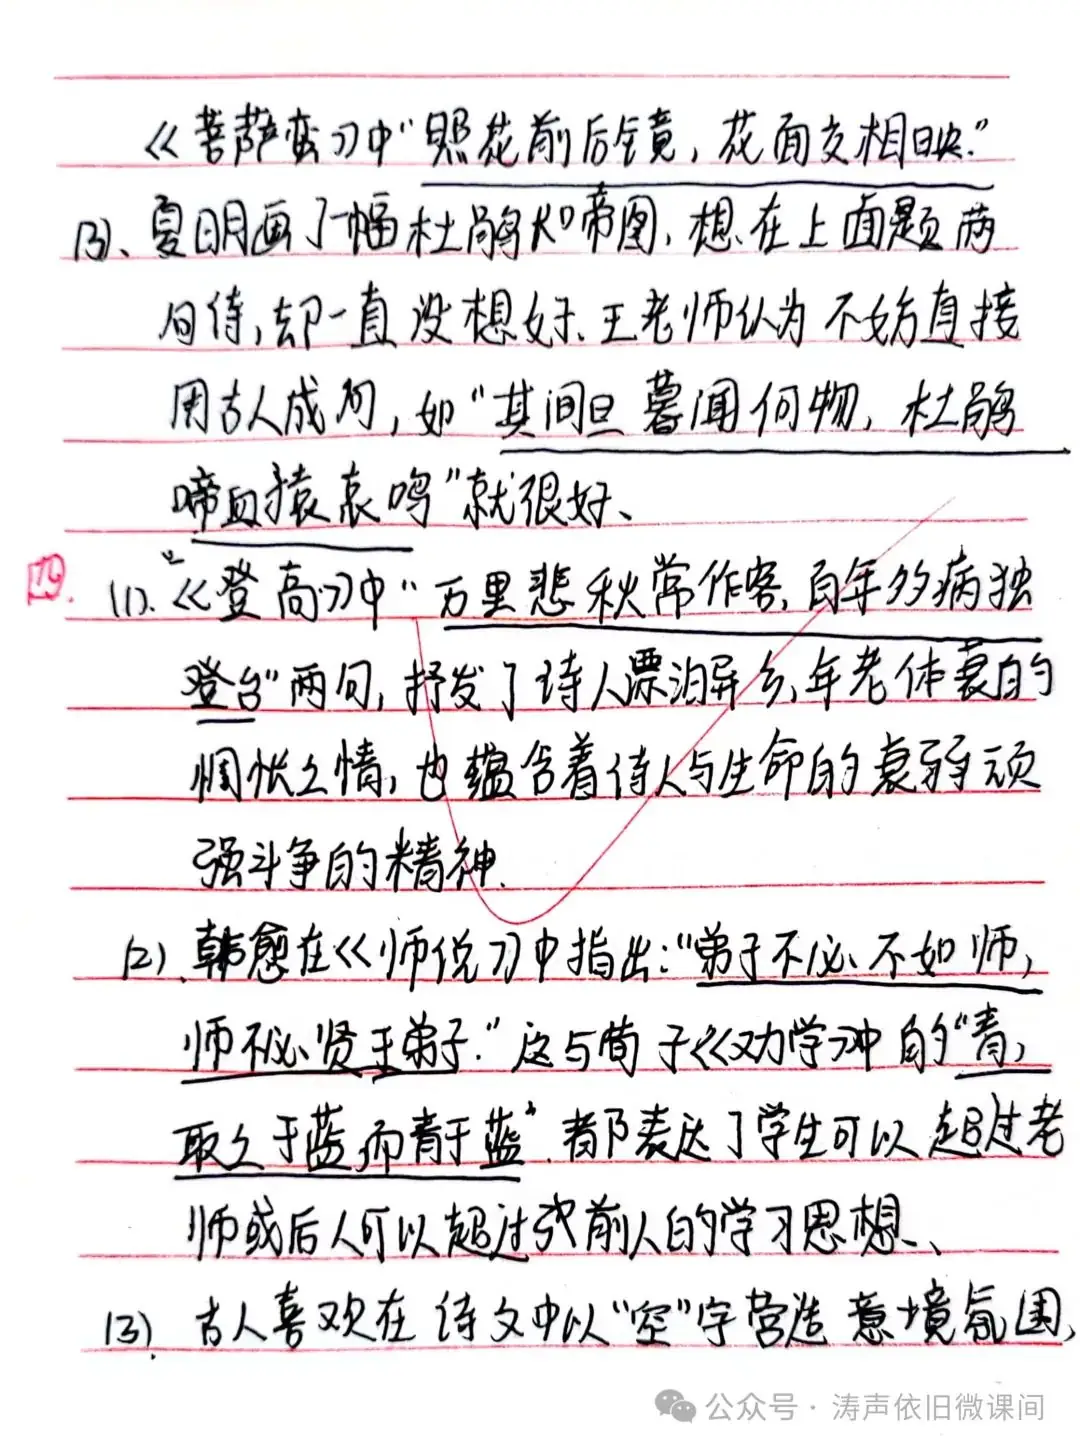 《菩萨蛮》中“照花前后镜，花面交相映。”
(3)、夏明画了一幅杜鹃啼图，想在上面题两
句诗，却一直没想好、王老师认为不妨直接
用古人成句，如“其间旦暮闻何物，杜鹃
啼血猿哀鸣”就很好、
十九.
(1).《登高》中“万里悲秋常作客，百年多病独
登台”两句，抒发了诗人漂泊异乡、年老体衰的
惆怅之情，也蕴含着诗人与生命的衰弱顽
强斗争的精神.
(2).韩愈在《师说》中指出:“弟子不必不如师，
师不必贤于弟子.”这与荀子《劝学》中的“青，
取之于蓝，而青于蓝”都表达了学生可以超过老
师或后人可以超过前人的学习思想、
(3)古人喜欢在诗文中以“空”字营造意境氛围，
公众号·涛声依旧微课间